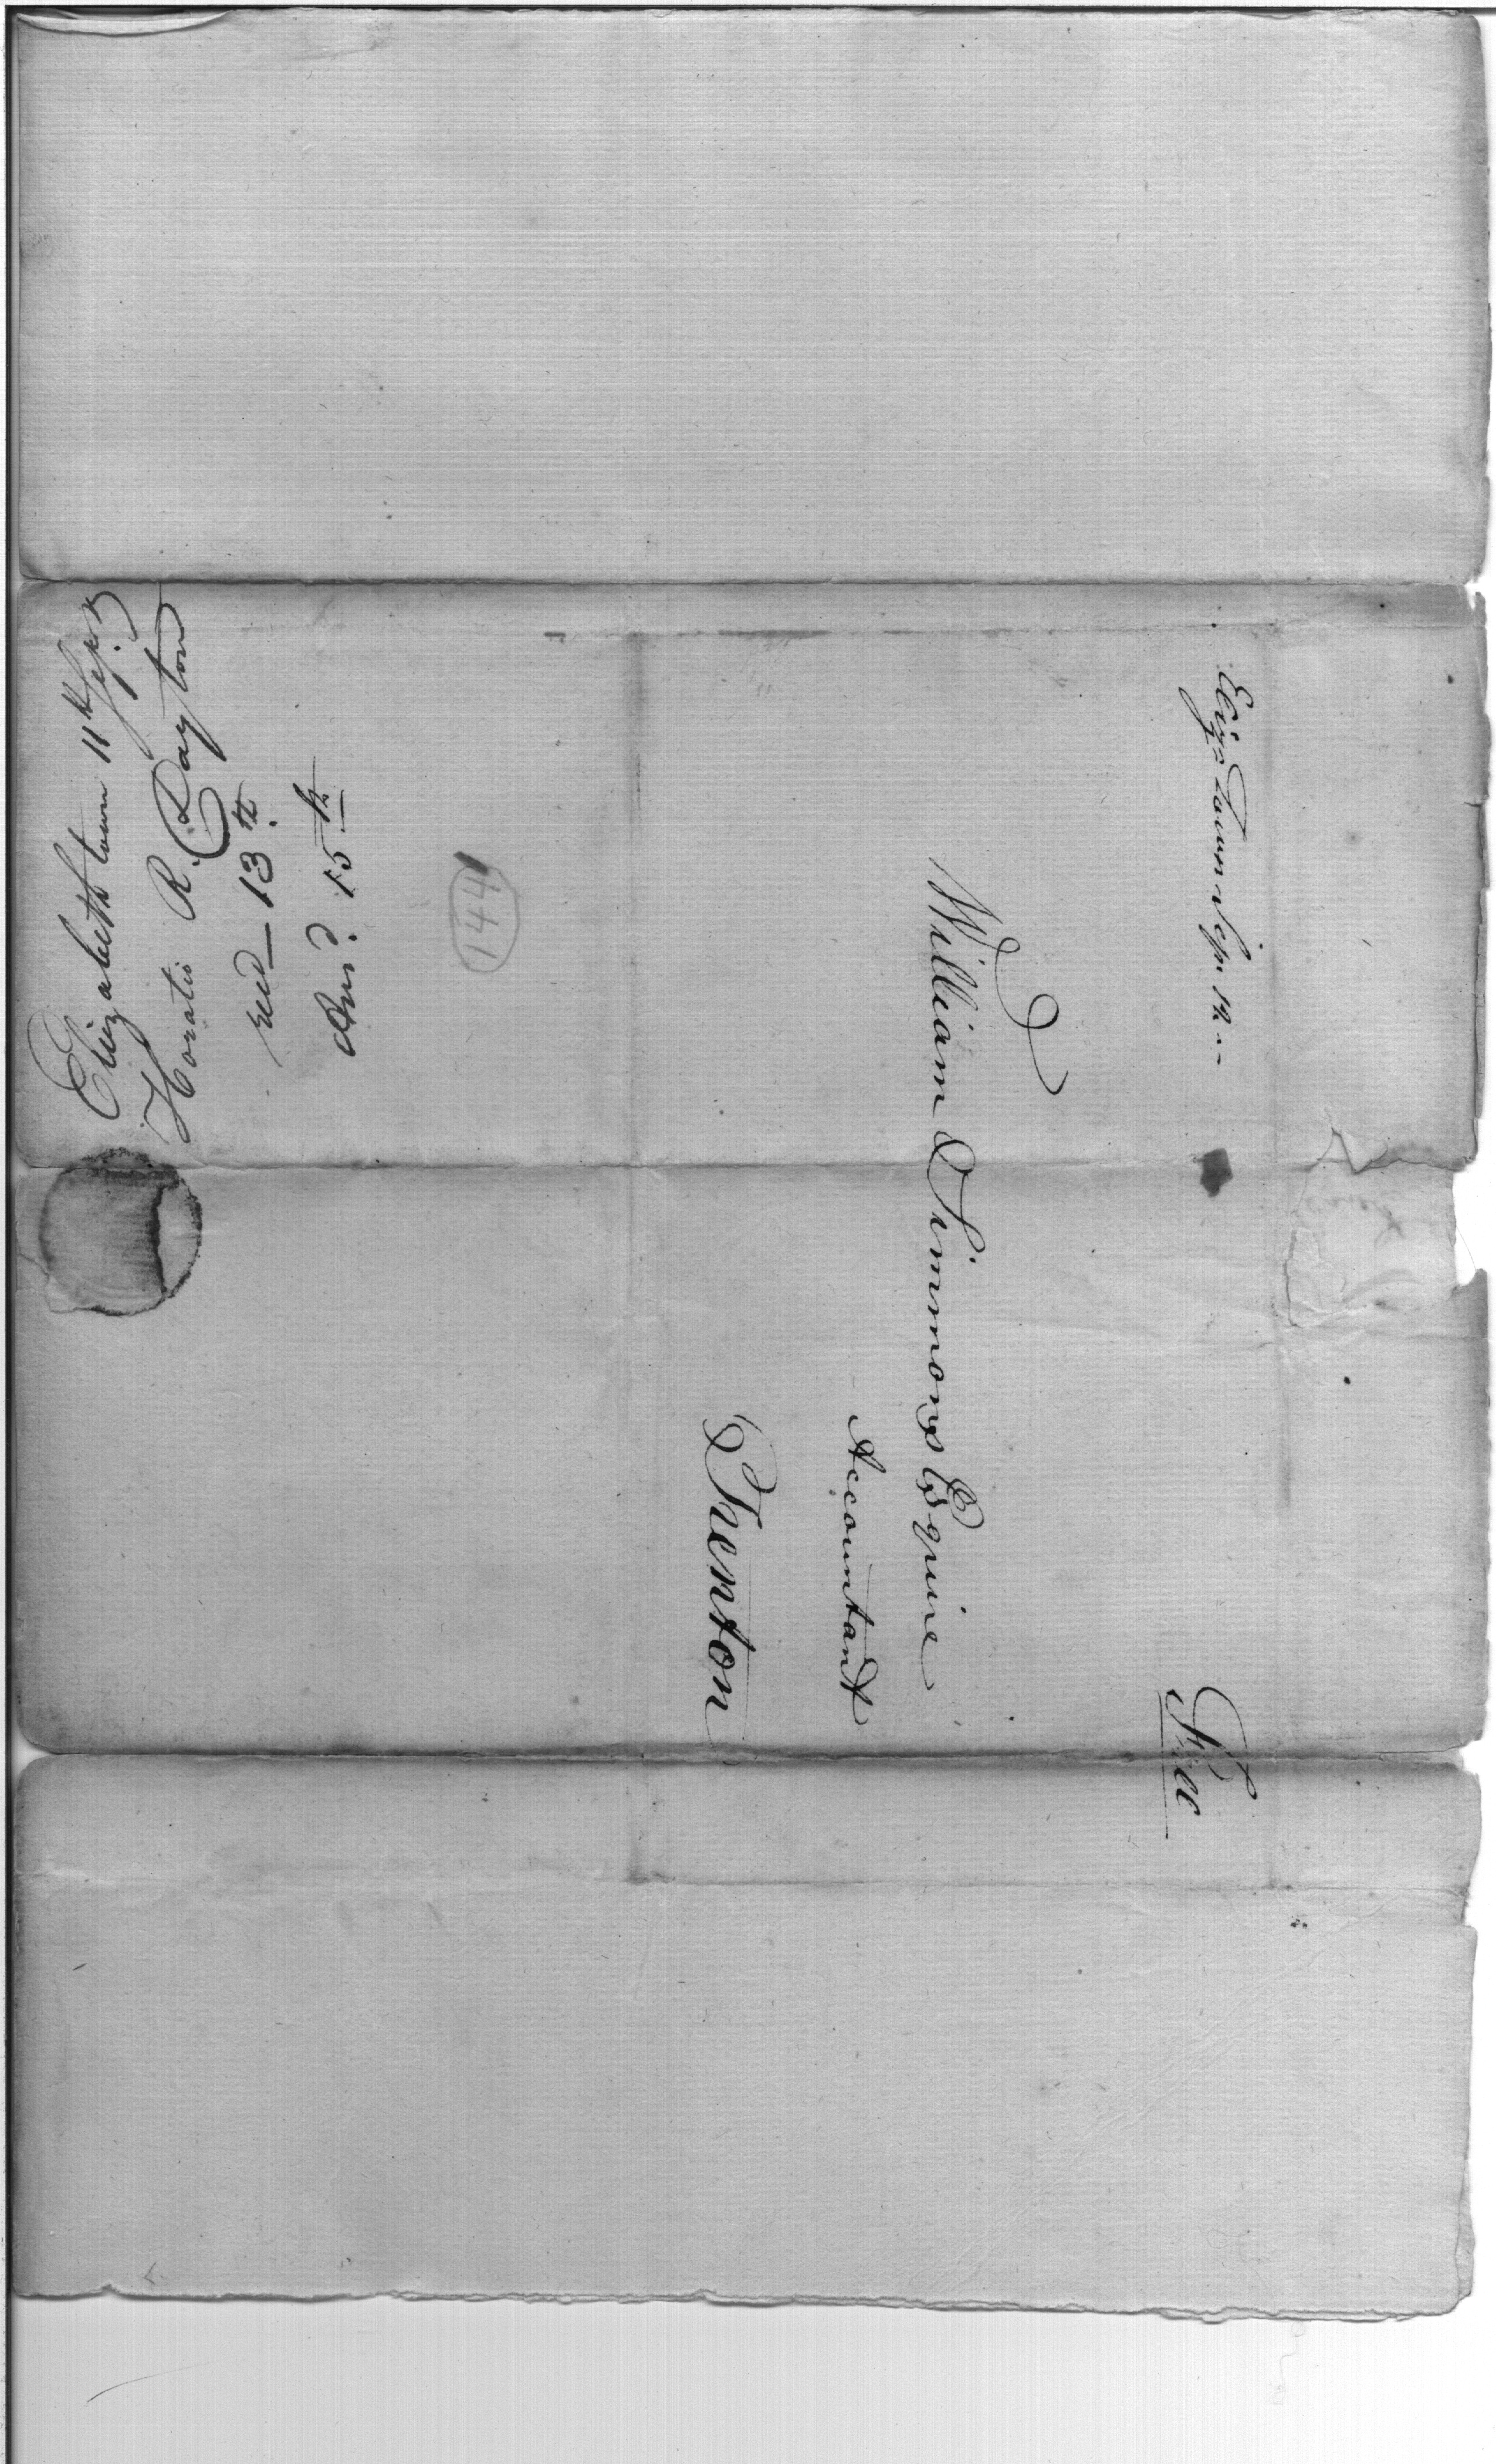 Eliz: Town Sepr 12
Free
William Simmons Esquire
Accountant
Trenton
Elizabeth town 11th Sepr
Horatio R. Dayton
recd 13th
Ansd. 15th
144